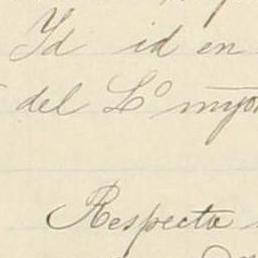 Yd id en
del Lº myor
Respecto